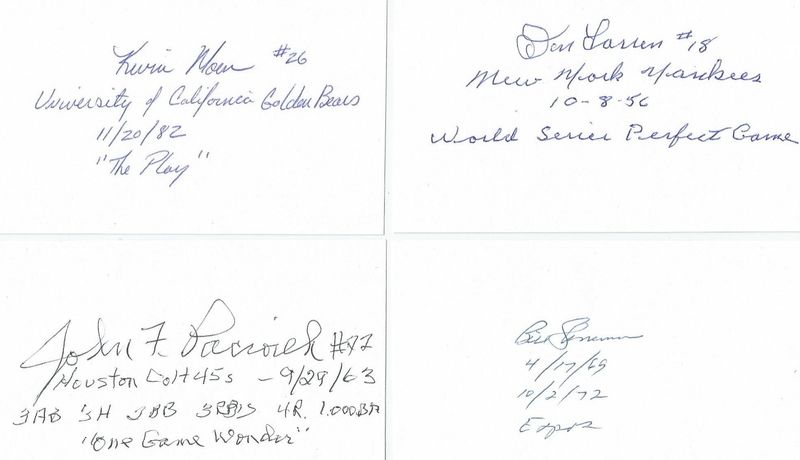 Kevin Moen #26
University of California Golden Bears
11/20/82
"The Play"
Don Larsen #18
New York Yankees
10-8-56
World Series Perfect Game
John F. Paciorek #22
Houston Colt 45s - 9/29/63
3AB 3H 2BB 3RBIS 4R. 1.000BA
"One Game Wonder"
Bill Stoneman
4/17/69
10/2/72
Expos